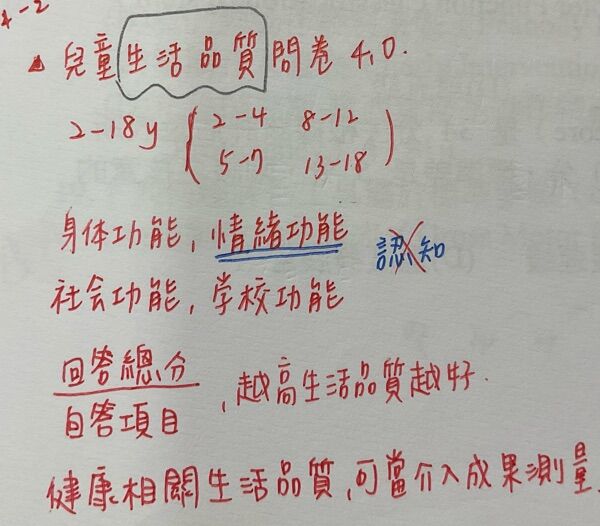 4-2
▲ 兒童生活品質問卷 4.0.
2-18y ( 2-4 8-12
5-7 13-18 )
身体功能, 情緒功能 認知
社会功能, 学校功能
回答總分
自答項目 , 越高生活品質越好.
健康相關生活品質, 可當介入成果測量.